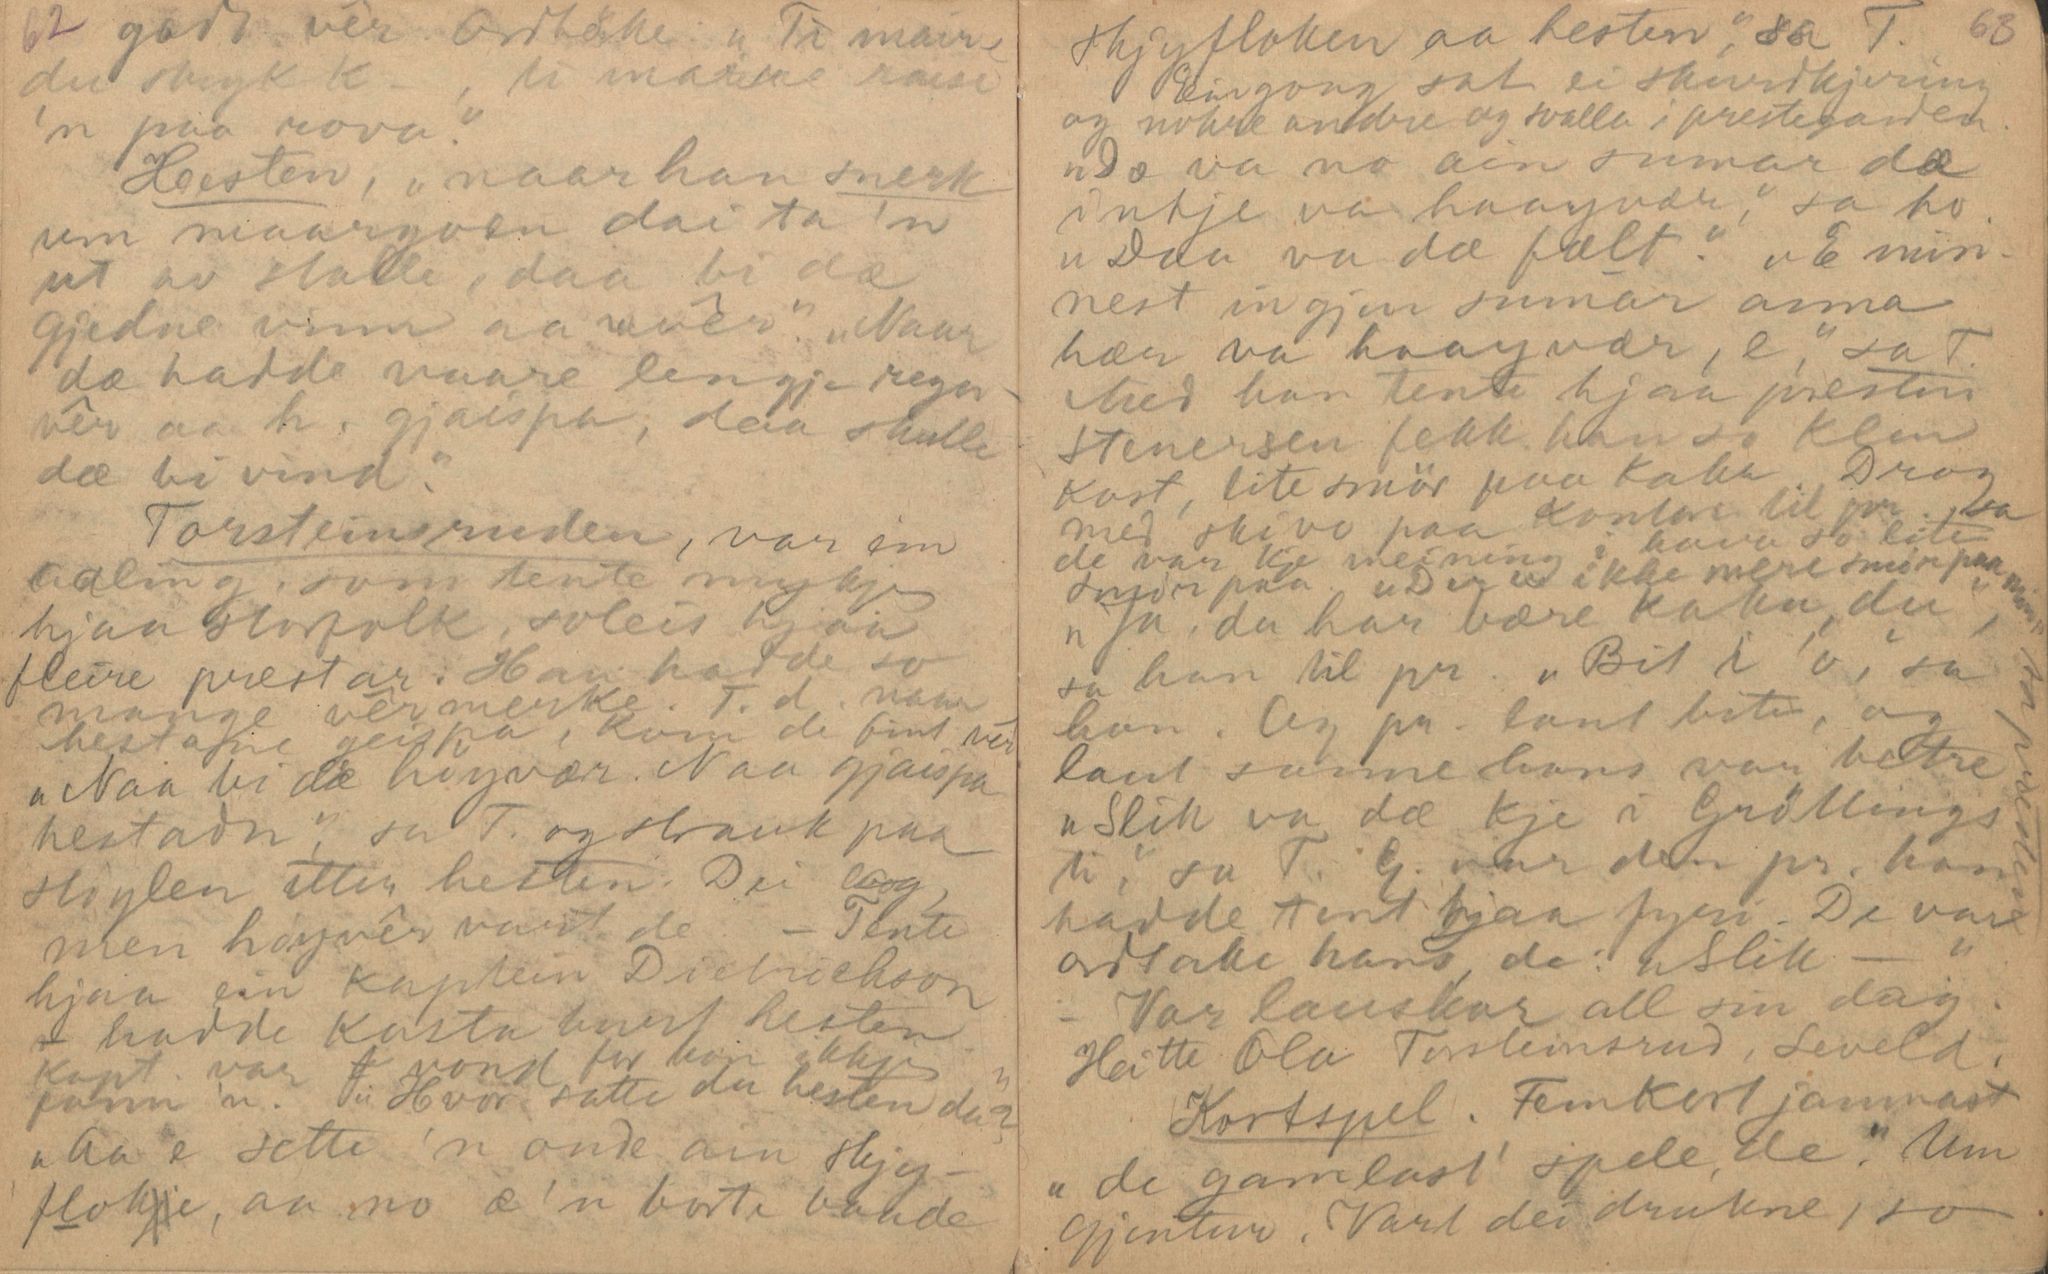 62 godt vêr. Ordtøke: „Ti mair
du stryk k – , ti maire raise
'n paa rova."
Hesten, „naar han snerk
um maargoen dai ta 'n
ut av stalle, daa bi dæ
gjedne vinn aa uvêr." „Naar
dæ hadde vaare lengje regn-
vêr aa h. gjaispa, daa skulle
dæ bi vind."
Torsteinsruden, var ein
adling, som tente mykje
hjaa storfolk, soleis hjaa
fleire prestar. Han hadde so
mange vêrmerke. T. d. naar
hestane geispa, kom de fint vêr
„Naa bi dæ høyvær. Naa gjaispa
hestadn", sa T. og strauk paa
støylen etter hesten. Dei log,
men høyvêr vart de. – Tente
hjaa ein kaptein Dietrichson
– hadde kasta burt hesten
Kapt. var vond for han ikkje
fann 'n. „Hvor satte du hesten da?"
„Aa e sette 'n onde ain skjy-
flokje, aa no æ 'n borte baade
63
skjyfloken aa hesten", sa T.
Eingong sat ei skurdkjering
og nokre andre og svalla i prestegarden.
„Dæ va no ain sumar dæ
inkje va haayvær", sa ho.
„Daa va dæ fælt." „E min-
nest ingjen sumar anna
hær va haayvær, e", sa T.
Med han tente hjaa presten
Stenersen fekk han so klen
kost, lite smör paa kaka. Drog
med skivo paa kontore til pr., sa
de var kje meining i hava so lite
smör paa. „Der er ikke mere smör paa min", sa presten
„Ja, du har bære kaka, du",
sa han til pr. „Bit i 'o", sa
han. Og pr. laut bita, og
laut sanne hans var betre
„Slik va dæ kje i Gröllings
ti", sa T. G. var den pr. han
hadde tent hjaa fyrr. De var
ordtøke hans, de: „Slik – "
– Var lauskar all sin dag.
Heitte Ola Torsteinsrud, Seveld.
Kortspel. Femkort jamnast
„de gamlast' spele, de." Um
gjentur. Vart dei drukne, so